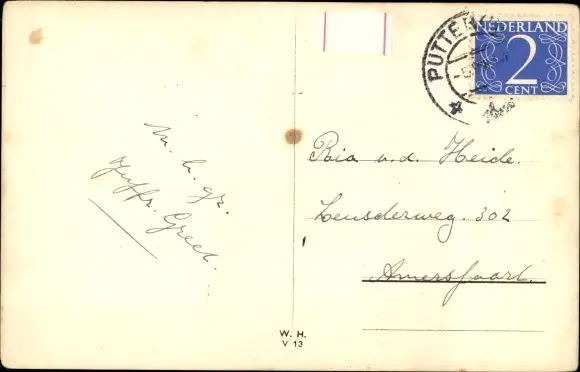 PUTTEN
NEDERLAND
2
CENT
m. h. gr.
Juffr. Greet.
Ria v.d. Heide.
Leusderweg. 302
Amersfoort.
W. H.
V 13